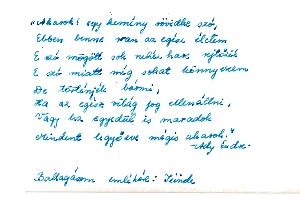 „Akarok! egy kemény rövidke szó,
Ebben benne van az egész életem
E szó mögött sok nehéz harc rejtőzik
E szó miatt még sokat könnyezem
De történjék bármi,
Ha az egész világ fog ellenállni,
Vagy ha egyedül is maradok
Mindent legyőzve mégis akarok!"
-Ady Endre-
Ballagásom emlékére: Tünde